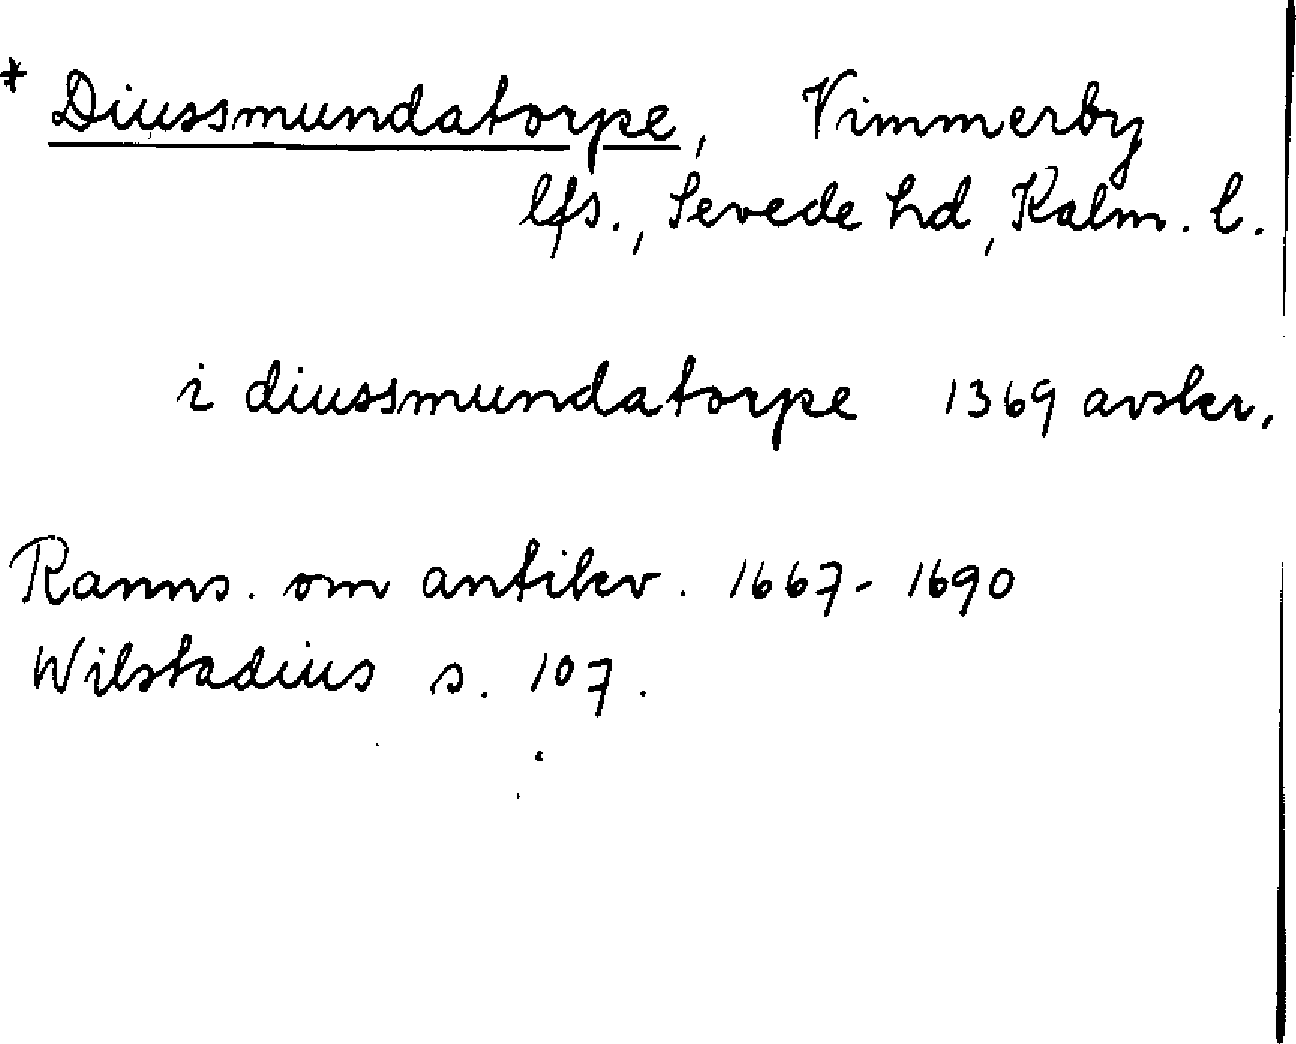 * Diussmundatorpe, Vimmerby
lfs., Sevede hd, Kalm. l.
i diussmundatorpe 1369 avskr.
Ranns. om antikv. 1667-1690
Wilstadius s. 107.